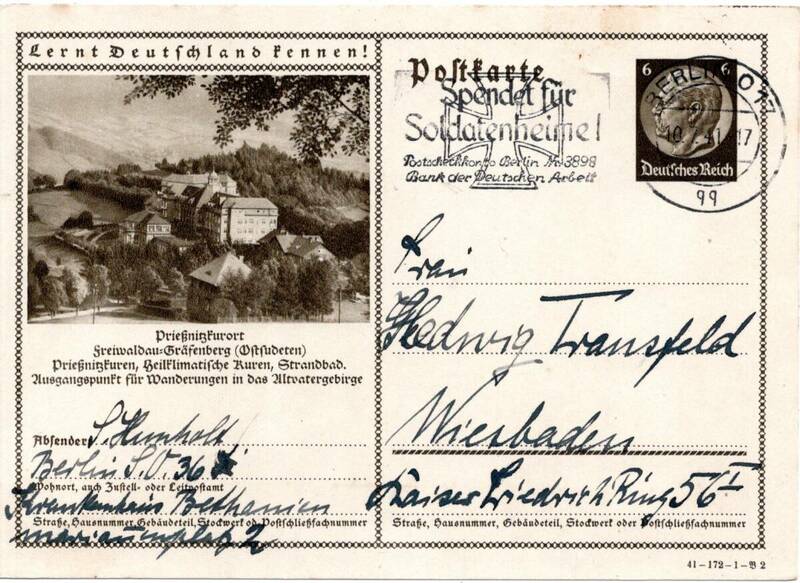 Lernt Deutschland kennen!
Prießnitzkurort
Freiwaldau-Gräfenberg (Ostsudeten)
Prießnitzkuren, Heilklimatische Kuren, Strandbad.
Ausgangspunkt für Wanderungen in das Altvatergebirge
Absender: S. Humholt
Berlin S.O. 36
Wohnort, auch Zustell- oder Leitpostamt
Krankenhaus Bethanien
Straße, Hausnummer, Gebäudeteil, Stockwerk od. Postschließfachnummer
Mariannenplatz 2
Postkarte
Spendet für
Soldatenheime!
Postscheckkonto Berlin Nr. 3898
Bank der Deutschen Arbeit
BERLIN O 17
10.7.41 17
qq
6 6
Deutsches Reich
Frau
Hedwig Transfeld
Wiesbaden
Kaiser Friedrich Ring 56 I
Straße, Hausnummer, Gebäudeteil, Stockwerk oder Postschließfachnummer
41-172-1-B 2